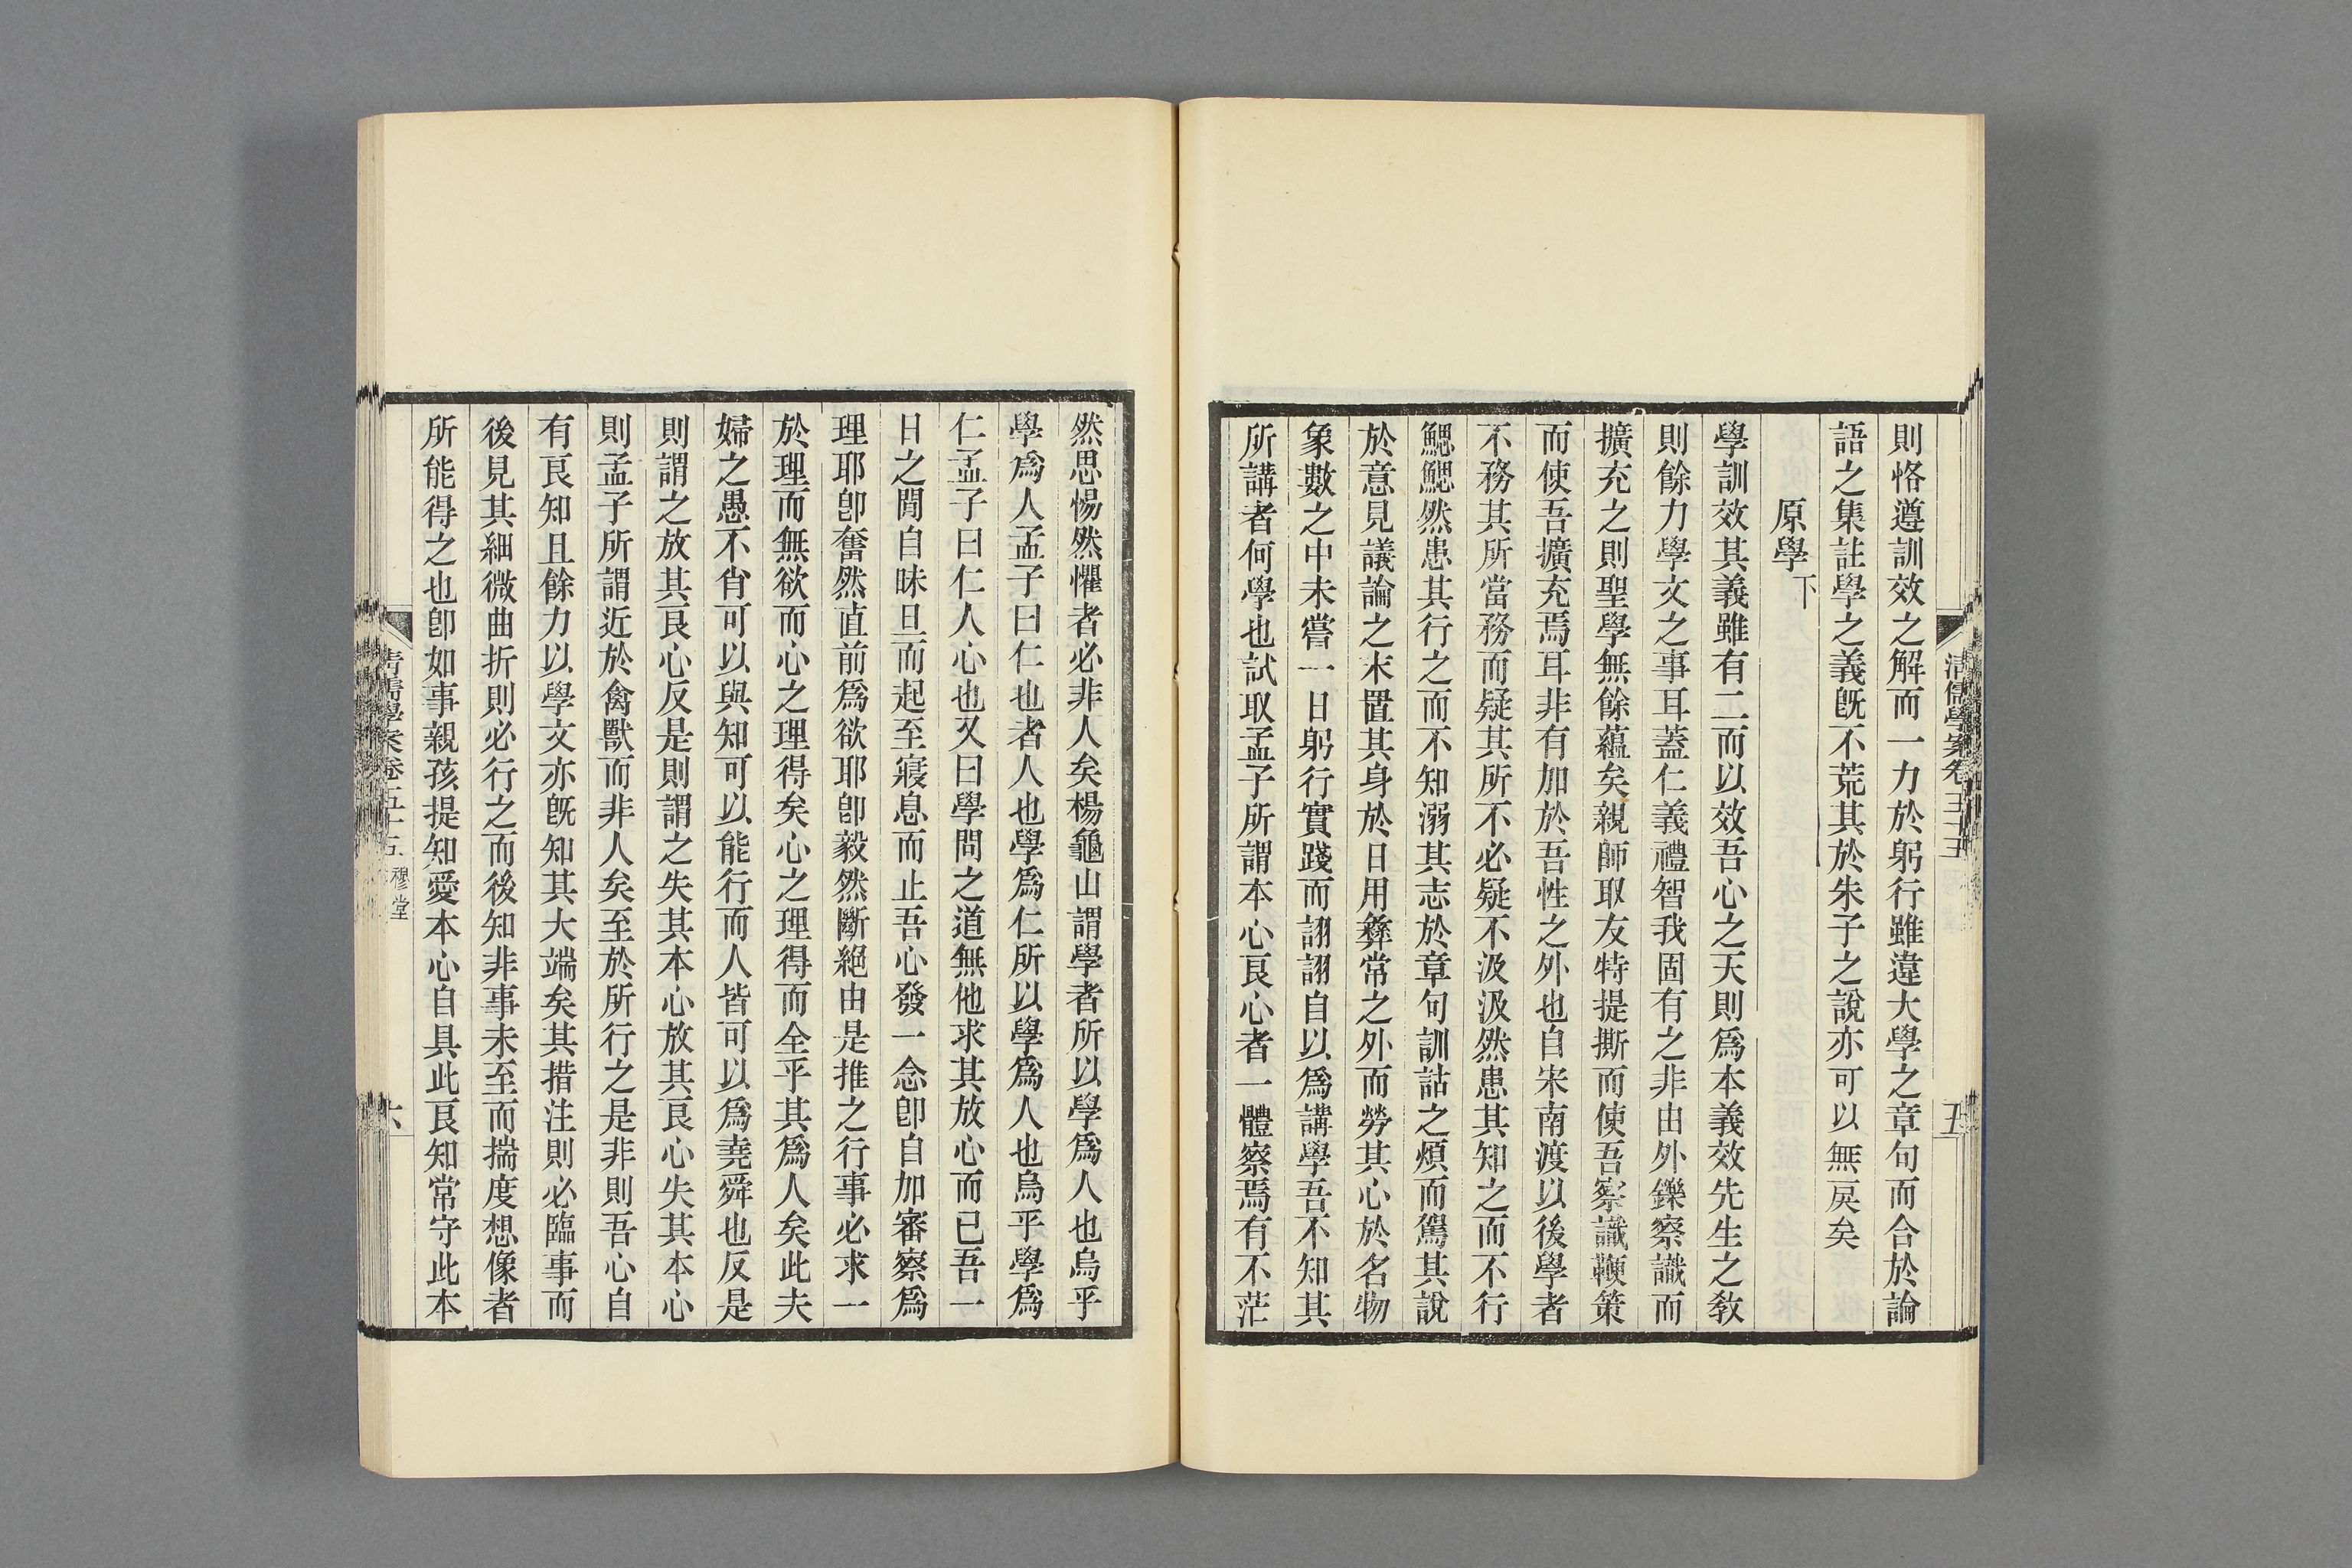 清儒學案卷五十五
五
則恪遵訓效之解而一力於躬行雖違大學之章句而合於論
語之集註學之義旣不荒其於朱子之說亦可以無戾矣
原學下
學訓效其義雖有二而以效吾心之天則爲本義效先生之敎
則餘力學文之事耳蓋仁義禮智我固有之非由外鑠察識而
擴充之則聖學無餘蘊矣親師取友特提撕而使吾察識鞭策
而使吾擴充焉耳非有加於吾性之外也自宋南渡以後學者
不務其所當務而疑其所不必疑不汲汲然患其知之而不行
鰓鰓然患其行之而不知溺其志於章句訓詁之煩而駕其說
於意見議論之末置其身於日用彝常之外而勞其心於名物
象數之中未嘗一日躬行實踐而詡詡自以爲講學吾不知其
所講者何學也試取孟子所謂本心良心者一體察焉有不茫
然思惕然懼者必非人矣楊龜山謂學者所以學爲人也烏乎
學爲人孟子曰仁也者人也學爲仁所以學爲人也烏乎學爲
仁孟子曰仁人心也又曰學問之道無他求其放心而已吾一
日之閒自昧旦而起至寢息而止吾心發一念卽自加審察爲
理耶卽奮然直前爲欲耶卽毅然斷絕由是推之行事必求一
於理而無欲而心之理得矣心之理得而全乎其爲人矣此夫
婦之愚不肖可以與知可以能行而人皆可以爲堯舜也反是
則謂之放其良心反是則謂之失其本心放其良心失其本心
則孟子所謂近於禽獸而非人矣至於所行之是非則吾心自
有良知且餘力以學文亦旣知其大端矣其措注則必臨事而
後見其細微曲折則必行之而後知非事未至而揣度想像者
所能得之也卽如事親孩提知愛本心自具此良知常守此本
清儒學案卷五十五 穆堂
六